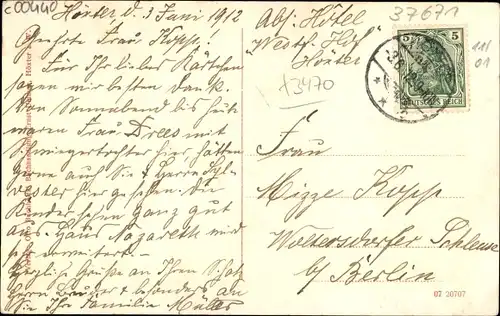 C00440
Höxter d. 3 Juni 1912
Geehrte Frau Kopp!
Für Ihr liebes Kärtchen
sagen wir besten Dank.
Von Sonnabend bis heute
waren Frau Drees
Schwiegertochter hier, hätten
gerne auch Sie & Herrn Syl-
vester hier gesehen. Die
Kinder sehen ganz gut
aus. Haus Nazareth wird
Herzliche Grüße an Ihren Schatz
Herrn Bruder & besonders an
Sie Ihre Familie Müller
Abs. Hôtel
"Westf. Hof"
Höxter
37671
+3470
111
01
5 5
DEUTSCHES REICH
Frau
Mizze Kopp
Woltersdorfer Schleuse
b/ Berlin
07 20707